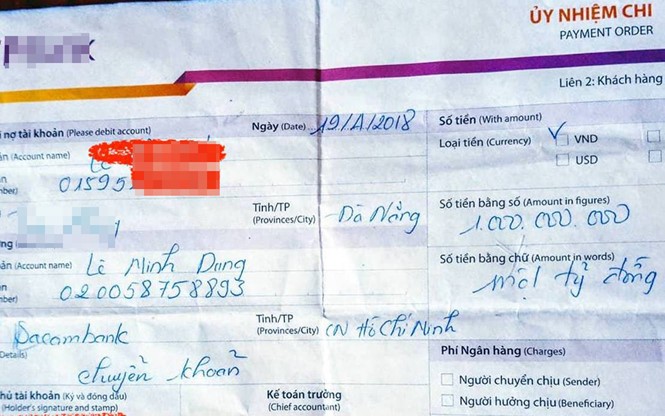 ỦY NHIỆM CHI
PAYMENT ORDER
Liên 2: Khách hàng
i nợ tài khoản (Please debit account)
Ngày (Date) 19/1/2018
Số tiền (With amount)
ản (Account name) Lê
Loại tiền (Currency) ✓ VND
USD
n
mber) 01595
Tỉnh/TP
(Provinces/City) Đà Nẵng
Số tiền bằng số (Amount in figures)
1.000.000.000
ng
ản (Account name) Lê Minh Dung
Số tiền bằng chữ (Amount in words)
một tỷ đồng
n
mber) 020058758893
Sacombank
Tỉnh/TP
(Provinces/City) CN Hồ Chí Minh
Details) chuyển khoản
Phí Ngân hàng (Charges)
Người chuyển chịu (Sender)
Người hưởng chịu (Beneficiary)
hủ tài khoản (Ký và đóng dấu)
(Holder's signature and stamp)
Kế toán trưởng
(Chief accountant)